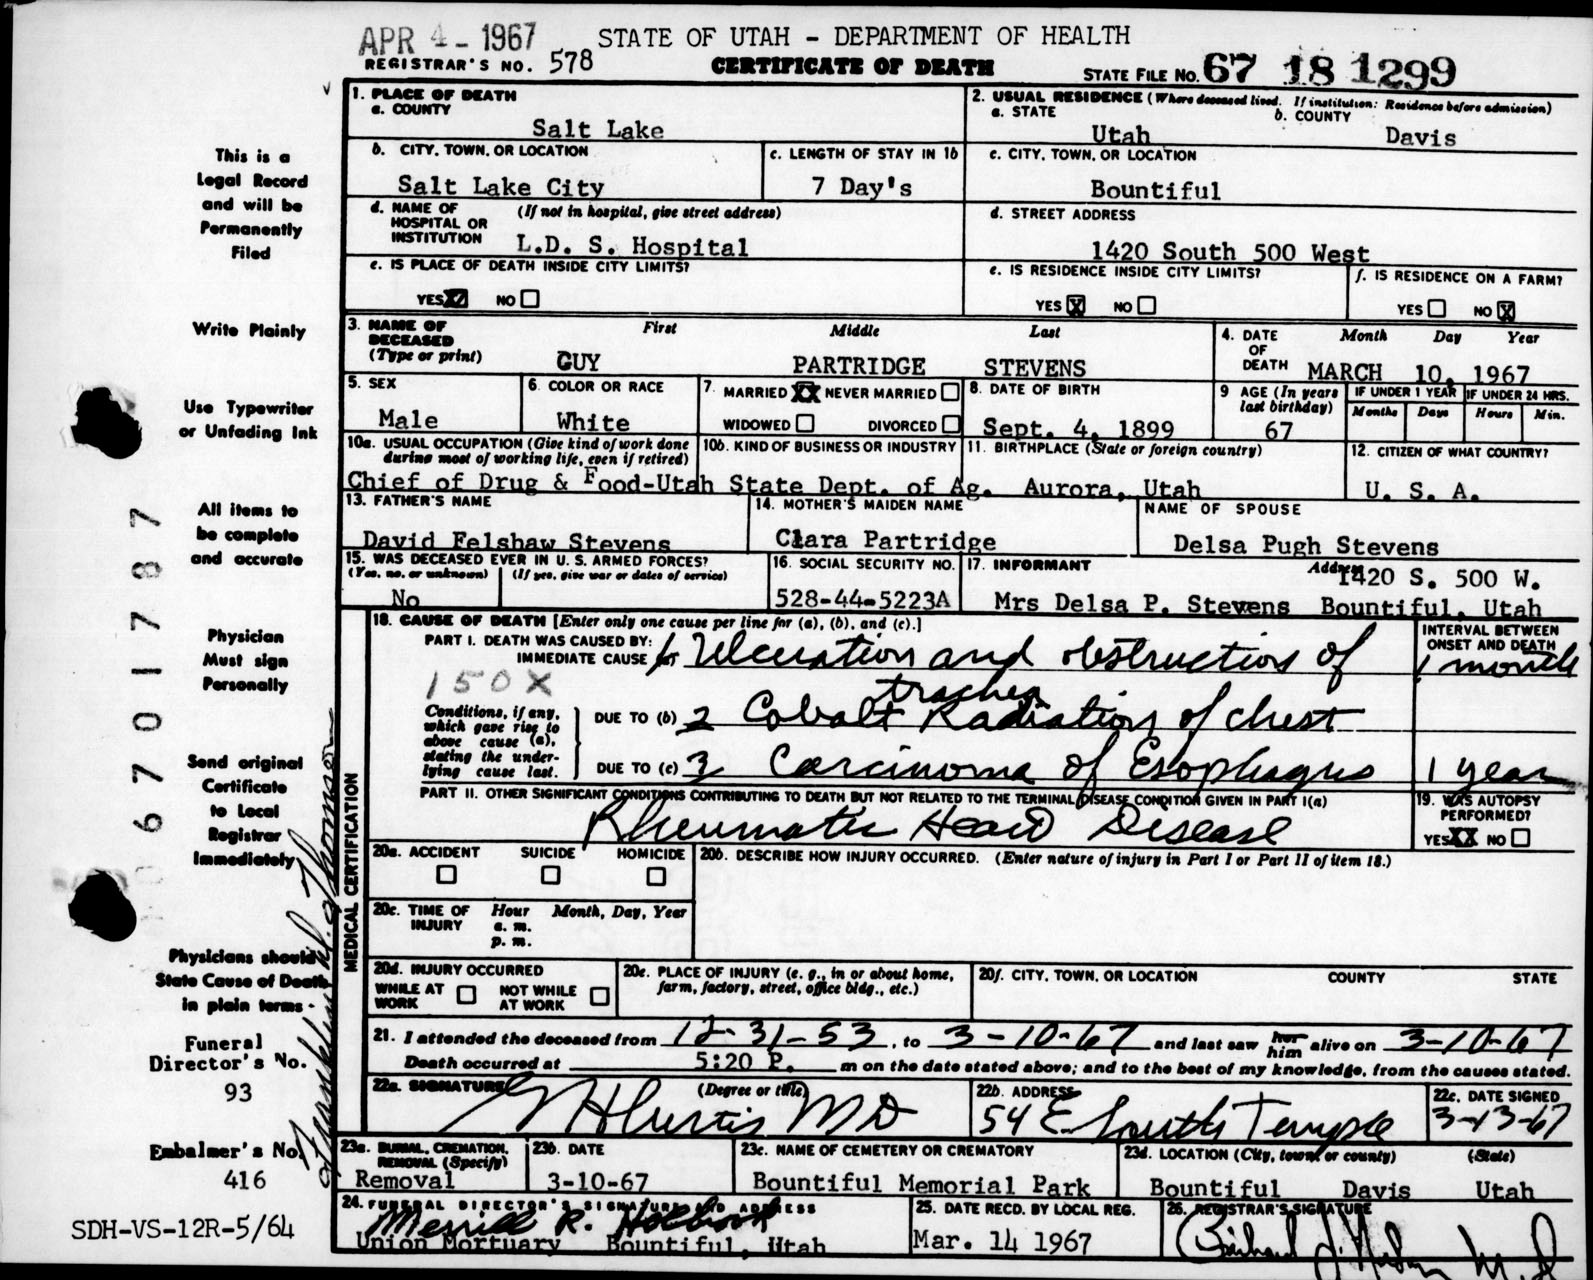 APR 4 - 1967
STATE OF UTAH - DEPARTMENT OF HEALTH
REGISTRAR'S NO. 578
CERTIFICATE OF DEATH
STATE FILE NO. 67 18 1299
This is a
Legal Record
and will be
Permanently
Filed
Write Plainly
Use Typewriter
or Unfading Ink
All items to
be complete
and accurate
Physician
Must sign
Personally
Send original
Certificate
to Local
Registrar
Immediately
Physicians should
State Cause of Death
in plain terms -
Funeral
Director's No.
93
Embalmer's No.
416
SDH-VS-12R-5/64
6701787
Franklin D. Thomson
1. PLACE OF DEATH
a. COUNTY
Salt Lake
2. USUAL RESIDENCE (Where deceased lived. If institution: Residence before admission)
a. STATE
Utah
b. COUNTY
Davis
b. CITY, TOWN, OR LOCATION
Salt Lake City
c. LENGTH OF STAY IN 1b
7 Day's
c. CITY, TOWN, OR LOCATION
Bountiful
d. NAME OF (If not in hospital, give street address)
HOSPITAL OR
INSTITUTION L.D. S. Hospital
d. STREET ADDRESS
1420 South 500 West
e. IS PLACE OF DEATH INSIDE CITY LIMITS?
YES X NO
e. IS RESIDENCE INSIDE CITY LIMITS?
YES X NO
f. IS RESIDENCE ON A FARM?
YES NO X
3. NAME OF First Middle Last
DECEASED
(Type or print) GUY PARTRIDGE STEVENS
4. DATE Month Day Year
OF
DEATH MARCH 10, 1967
5. SEX
Male
6. COLOR OR RACE
White
7. MARRIED XX NEVER MARRIED
WIDOWED DIVORCED
8. DATE OF BIRTH
Sept. 4, 1899
9 AGE (In years
last birthday)
67
IF UNDER 1 YEAR
Months Days
IF UNDER 24 HRS.
Hours Min.
10a. USUAL OCCUPATION (Give kind of work done
during most of working life, even if retired)
10b. KIND OF BUSINESS OR INDUSTRY
Chief of Drug & Food-Utah State Dept. of Ag.
11. BIRTHPLACE (State or foreign country)
Aurora, Utah
12. CITIZEN OF WHAT COUNTRY?
U. S. A.
13. FATHER'S NAME
David Felshaw Stevens
14. MOTHER'S MAIDEN NAME
Clara Partridge
NAME OF SPOUSE
Delsa Pugh Stevens
15. WAS DECEASED EVER IN U. S. ARMED FORCES?
(Yes, no, or unknown) (If yes, give war or dates of service)
No
16. SOCIAL SECURITY NO.
528-44-5223A
17. INFORMANT Address
1420 S. 500 W.
Mrs Delsa P. Stevens Bountiful, Utah
MEDICAL CERTIFICATION
18. CAUSE OF DEATH [Enter only one cause per line for (a), (b), and (c).]
INTERVAL BETWEEN
ONSET AND DEATH
PART I. DEATH WAS CAUSED BY:
IMMEDIATE CAUSE Ulceration and obstruction of 1 month
150X
trachea
Conditions, if any,
which gave rise to
above cause (a),
stating the under-
lying cause last.
DUE TO (b) 2 Cobalt Radiation of chest
DUE TO (c) 3 Carcinoma of Esophagus 1 year
PART II. OTHER SIGNIFICANT CONDITIONS CONTRIBUTING TO DEATH BUT NOT RELATED TO THE TERMINAL DISEASE CONDITION GIVEN IN PART I(a)
Rheumatic Heart Disease
19. WAS AUTOPSY
PERFORMED?
YES XX NO
20a. ACCIDENT SUICIDE HOMICIDE
20b. DESCRIBE HOW INJURY OCCURRED. (Enter nature of injury in Part I or Part II of item 18.)
20c. TIME OF Hour Month, Day, Year
INJURY a. m.
p. m.
20d. INJURY OCCURRED
WHILE AT NOT WHILE
WORK AT WORK
20e. PLACE OF INJURY (e. g., in or about home,
farm, factory, street, office bldg., etc.)
20f. CITY, TOWN, OR LOCATION COUNTY STATE
21. I attended the deceased from 12-31-53, to 3-10-67 and last saw her him alive on 3-10-67
Death occurred at 5:20 P. m on the date stated above; and to the best of my knowledge, from the causes stated.
22a. SIGNATURE (Degree or title)
Curtis MD
22b. ADDRESS
54 E. South Temple
22c. DATE SIGNED
3-13-67
23a. BURIAL, CREMATION,
REMOVAL (Specify)
Removal
23b. DATE
3-10-67
23c. NAME OF CEMETERY OR CREMATORY
Bountiful Memorial Park
23d. LOCATION (City, town, or county) (State)
Bountiful Davis Utah
24. FUNERAL DIRECTOR'S SIGNATURE AND ADDRESS
Merrill R. Holbrook
Union Mortuary Bountiful, Utah
25. DATE RECD. BY LOCAL REG.
Mar. 14 1967
26. REGISTRAR'S SIGNATURE